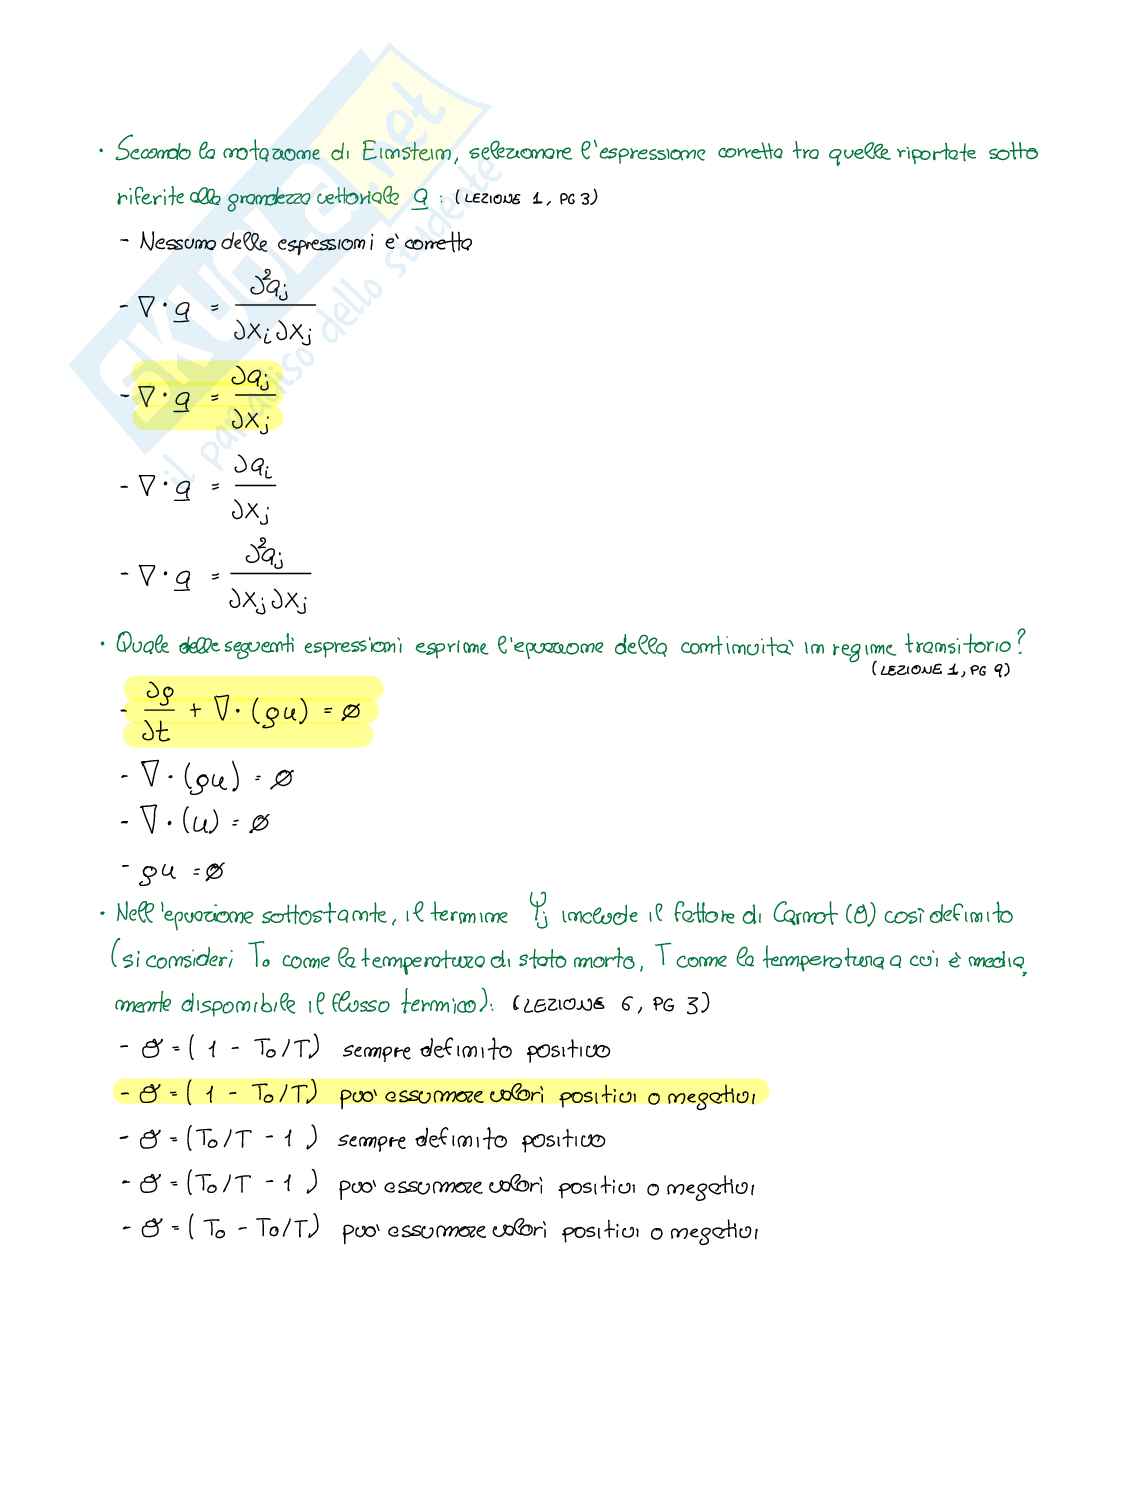 · Secondo la notazione di Einstein, selezionare l'espressione corretta tra quelle riportate sotto
riferite alla grandezza vettoriale a : (LEZIONE 1, PG 3)
- Nessuna delle espressioni è corretta
- ∇ · a = ∂²aj / ∂xi ∂xj
- ∇ · a = ∂aj / ∂xj
- ∇ · a = ∂ai / ∂xj
- ∇ · a = ∂²aj / ∂xj ∂xj
· Quale delle seguenti espressioni esprime l'equazione della continuità in regime transitorio?
(LEZIONE 1, PG 9)
- ∂ρ / ∂t + ∇ · (ρu) = ∅
- ∇ · (ρu) = ∅
- ∇ · (u) = ∅
- ρu = ∅
· Nell'equazione sottostante, il termine Ψj include il fattore di Carnot (θ) così definito
(si consideri T₀ come la temperatura di stato morto, T come la temperatura a cui è media
mente disponibile il flusso termico): (LEZIONE 6, PG 3)
- θ = (1 - T₀/T) sempre definito positivo
- θ = (1 - T₀/T) può assumere valori positivi o negativi
- θ = (T₀/T - 1) sempre definito positivo
- θ = (T₀/T - 1) può assumere valori positivi o negativi
- θ = (T₀ - T₀/T) può assumere valori positivi o negativi
SKUOLA.net
il paradiso dello studente